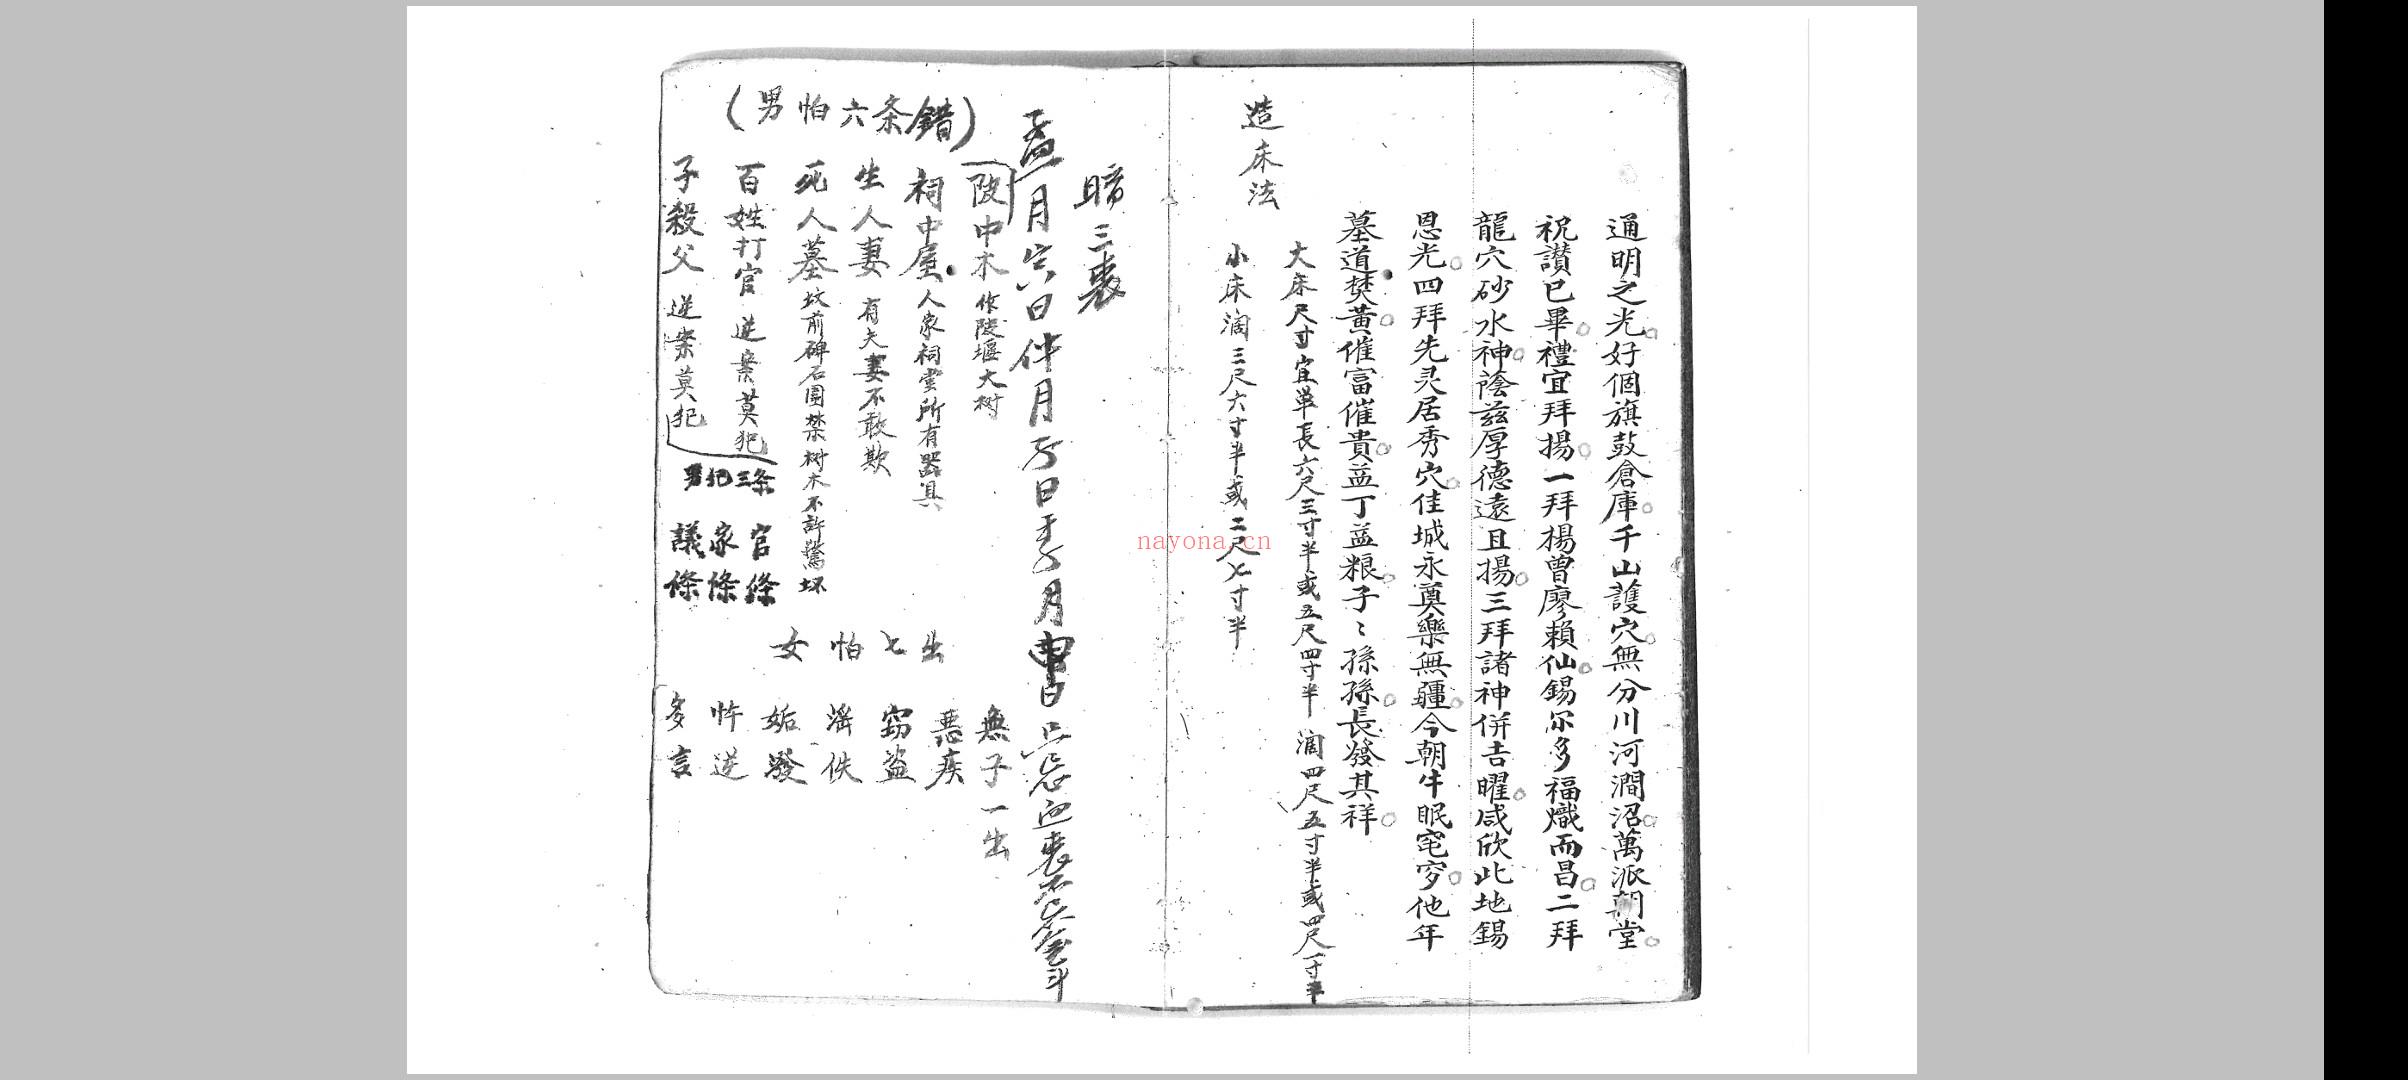 通明之光好個旗鼓倉庫千山護穴無分川河澗沼萬派朝堂
祝讃已畢禮宜拜揚一拜楊曾廖賴仙錫尔多福熾而昌二拜
龍穴砂水神蔭兹厚德遠且揚三拜諸神併吉曜咸欣此地錫
恩光四拜先灵居秀穴佳城永奠樂無疆今朝牛眠窀穸他年
墓道焚黃催富催貴益丁益粮子〻孫孫長發其祥
造床法
大床尺寸宜單長六尺三寸半或五尺四寸半濶四尺五寸半或四尺一寸半
小床濶三尺六寸半或二尺七寸半
nayona.cn
暗三喪
孟月 日伴月 日季月 日
(男怕六条錯)
陂中木作陂堰大树
祠中屋人家祠堂所有器具
生人妻有夫妻不敢欺
死人墓坟前碑石圍禁树木不許驚坏
百姓打官逆案莫犯
子殺父逆案莫犯
男犯三条
官條
家條
議條
女怕七出
無子一出
惡疾
窃盜
滛佚
妬發
忤逆
多言